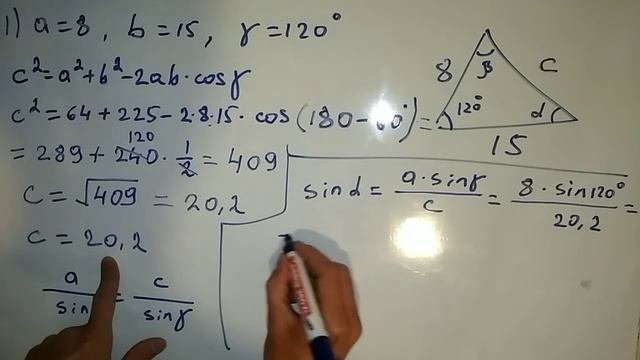 1) a=8, b=15, γ=120°
c²=a²+b²-2ab·cosγ
c²=64+225-2·8·15·cos(180-60°)=
=289+240·1/2=409
120
c=√409=20,2
c=20,2
a/sin = c/sinγ
8 β c
120° α
15
sinα = a·sinγ/c = 8·sin120°/20,2 =